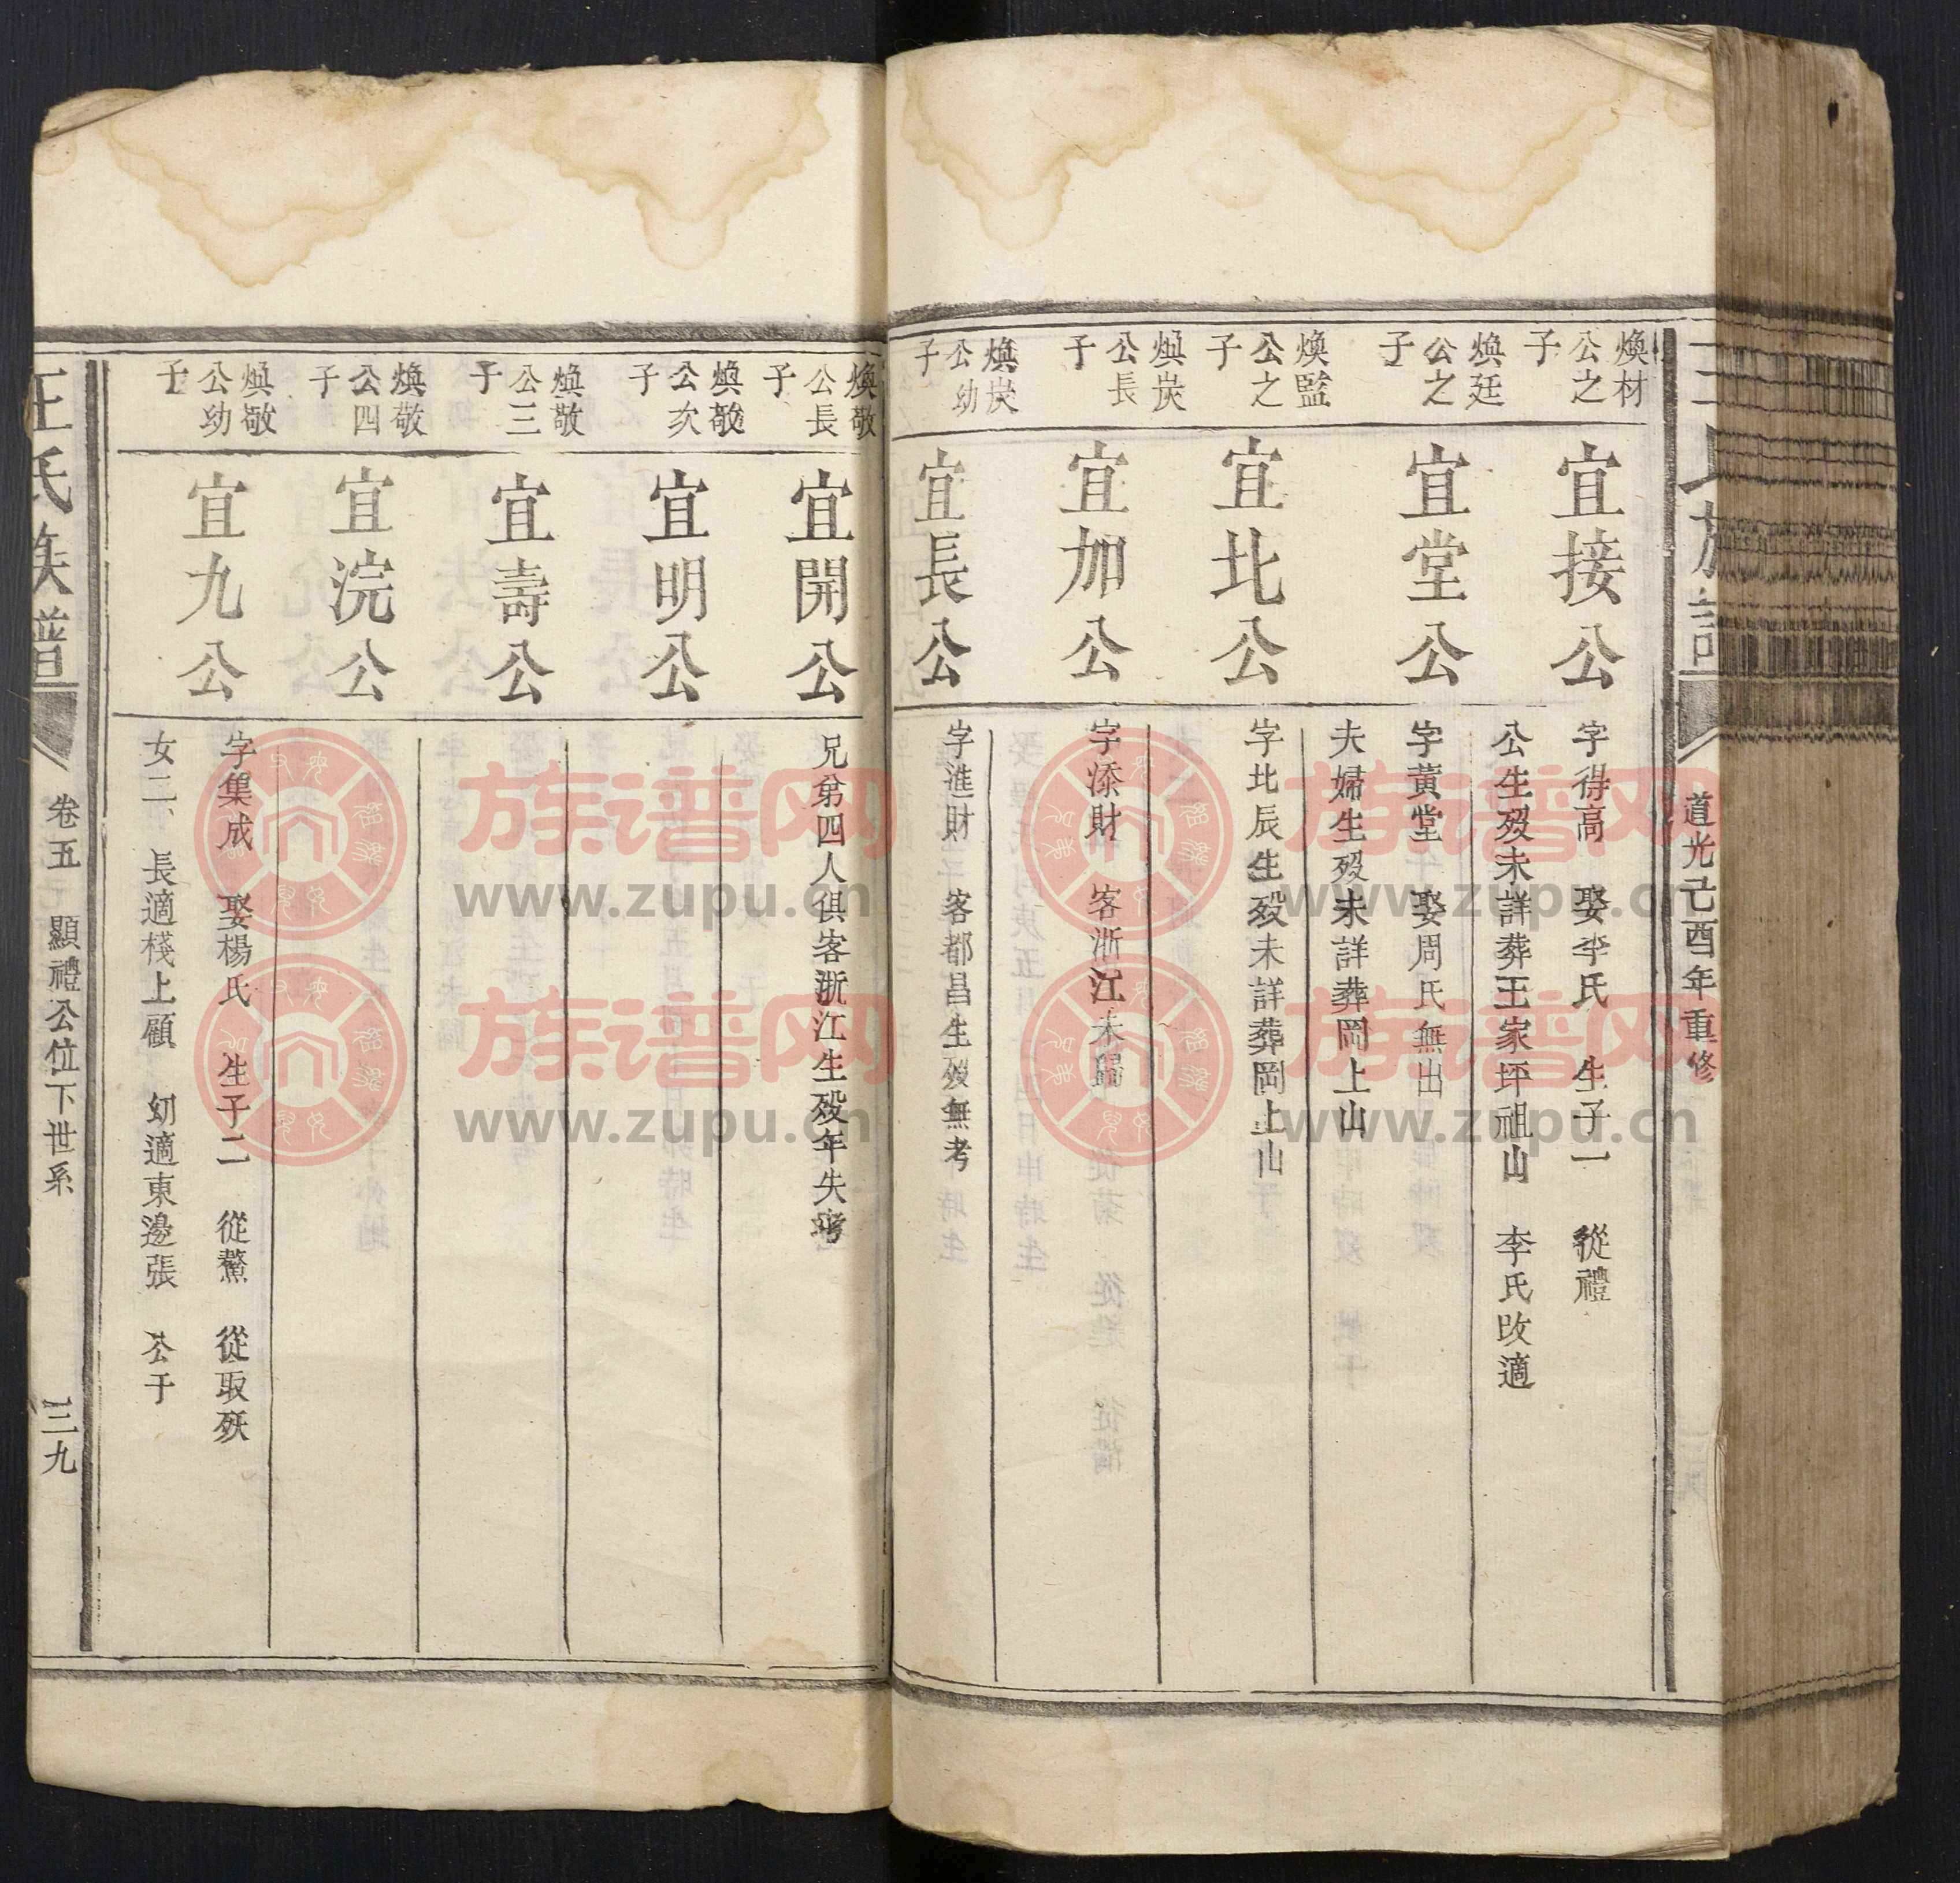 王氏族譜
道光己酉年重修
煥材
公之
子
宜接公
字得高 娶李氏 生子一 從禮
公生歿未詳葬王家坪祖山 李氏改適
煥廷
公之
子
宜堂公
字黃堂 娶周氏無出
夫婦生歿未詳葬岡上山
煥監
公之
子
宜北公
字北辰生歿未詳葬岡上山
煥炭
公長
子
宜加公
字添財 客浙江未歸
煥炭
公幼
子
宜長公
字進財 客都昌生歿無考
煥敬
公長
子
宜開公
兄弟四人俱客浙江生歿年失考
煥敬
公次
子
宜明公
煥敬
公三
子
宜壽公
煥敬
公四
子
宜浣公
煥敬
公幼
子
宜九公
字集成 娶楊氏 生子二 從鰲 從取殀
女二、長適棧上顧 幼適東邊張 公于
王氏族譜
卷五 顯禮公位下世系 三九
族谱网
www.zupu.cn
族谱网
www.zupu.cn
族谱网
www.zupu.cn
族谱网
www.zupu.cn